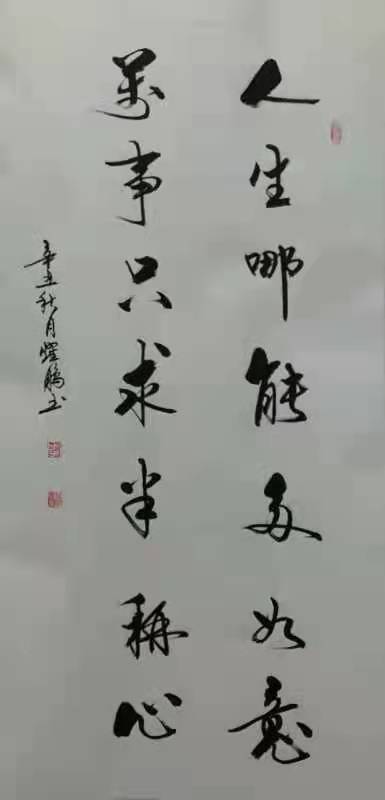 人生哪能多如意
萬事只求半稱心
辛丑秋月耀鵬书